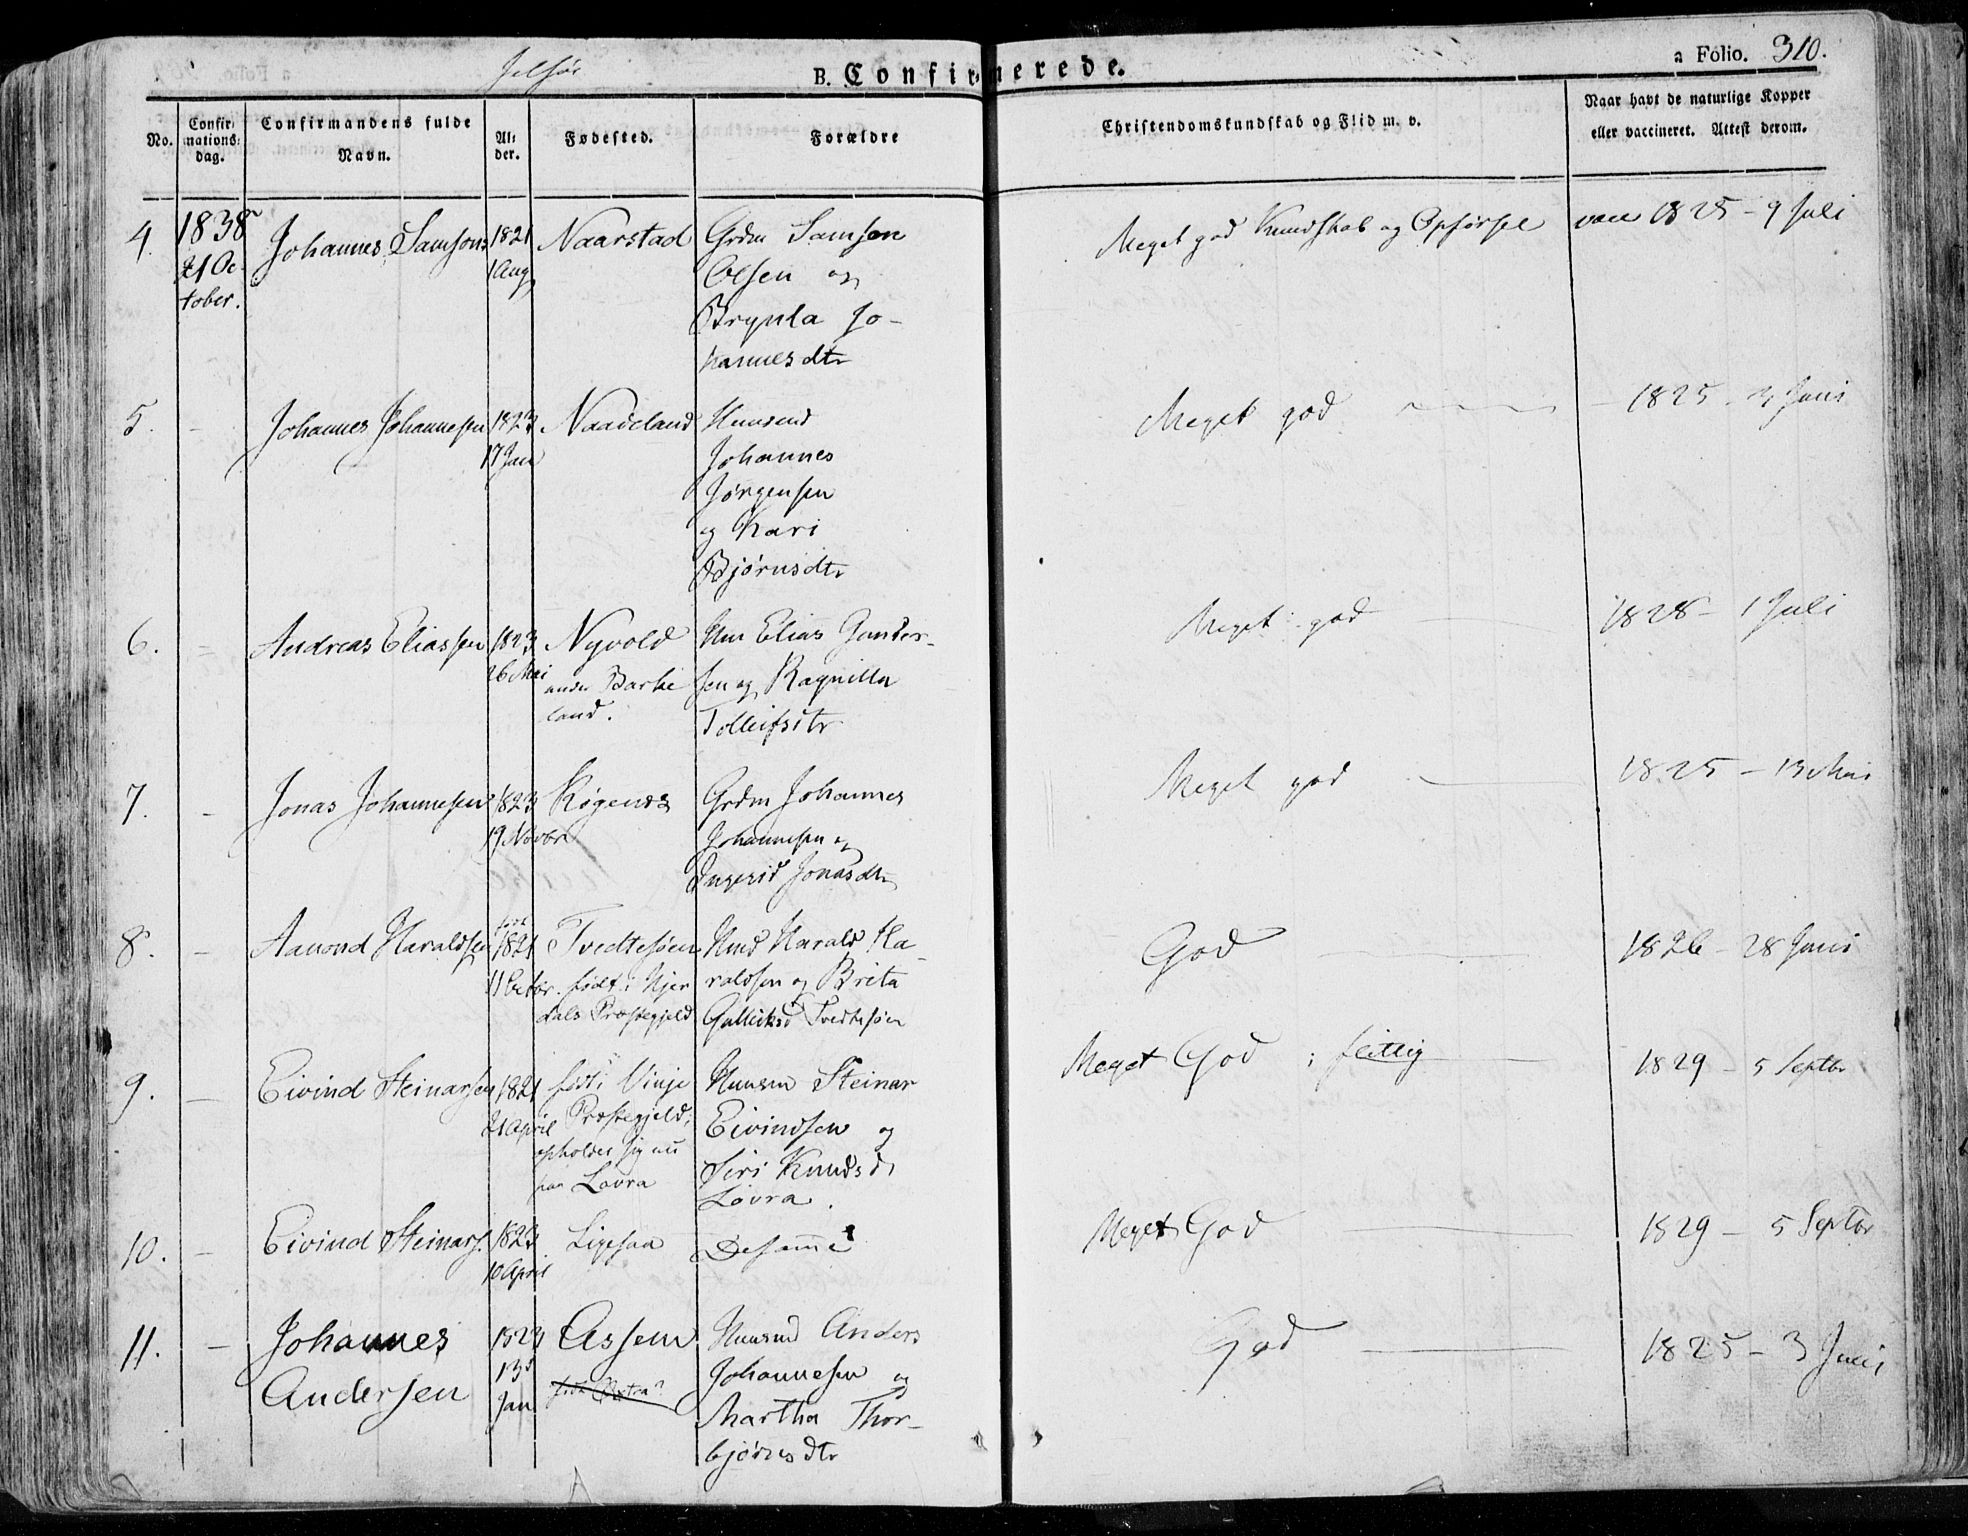 Jelsøe
B. Confirmerede.
a Folio. 310.
No.
Confirmations-dag.
Confirmandens fulde Navn.
Alder.
Fødested.
Forældre
Christendomskundskab og Flid m. v.
Naar havt de naturlige Kopper eller vaccineret. Attest derom.
4.
1838
21 Oc-
tober.
Johannes Samsons
1821
1 Aug
Naarstad
Grdm Samson
Olsen og
Brynla Jo-
hannesdtr
Meget god Kundskab og Opførsel
vacc 1825 - 9 Juli
5. -
Johannes Johannesen
1823
17 Jan
Naadeland
Huusmd
Johannes
Jørgensen
og Kari
Bjørnsdtr
Meget god
1825 - 3 Juni
6. -
Andreas Eliassen
1823
26 Mai
Nyvold
under Barke
land.
Hm Elias Gunder-
sen og Ragnilla
Tollefsdtr
Meget god
1828 - 1 Juli
7. -
Jonas Johannesen
1823
19 Novbr
Røgenes
Grdm Johannes
Johannesen og
Ingerid Jonasdtr
Meget god
1825 - 13 Mai
8. -
Aamond Haraldsen
født
1821
11 Octbr.
Tvedtesøen
født i Hjer
dals Præstegjeld
Hmd Harald Ha-
raldsen og Brita
Gulliksd Tvedtesøen
God
1826 - 28 Juni
9. -
Eivind Steinarsen
1821
21 April
født i Vinje
Præstegjeld;
opholder sig nu
paa Lovra
Huusm Steinar
Eivindsen og
Siri Knudsd
Lovra.
Meget God; flittig
1829 - 5 Septbr
10. -
Eivind Steinars.
1823
10 April
Ligesaa
Desamme
Meget God
1829 - 5 Septbr
11. -
Johannes
Andersen
1823
13
Jan
Assem
Huusmd Anders
Johannesen og
Martha Thor-
bjørnsdtr
God
1825 - 3 Juni